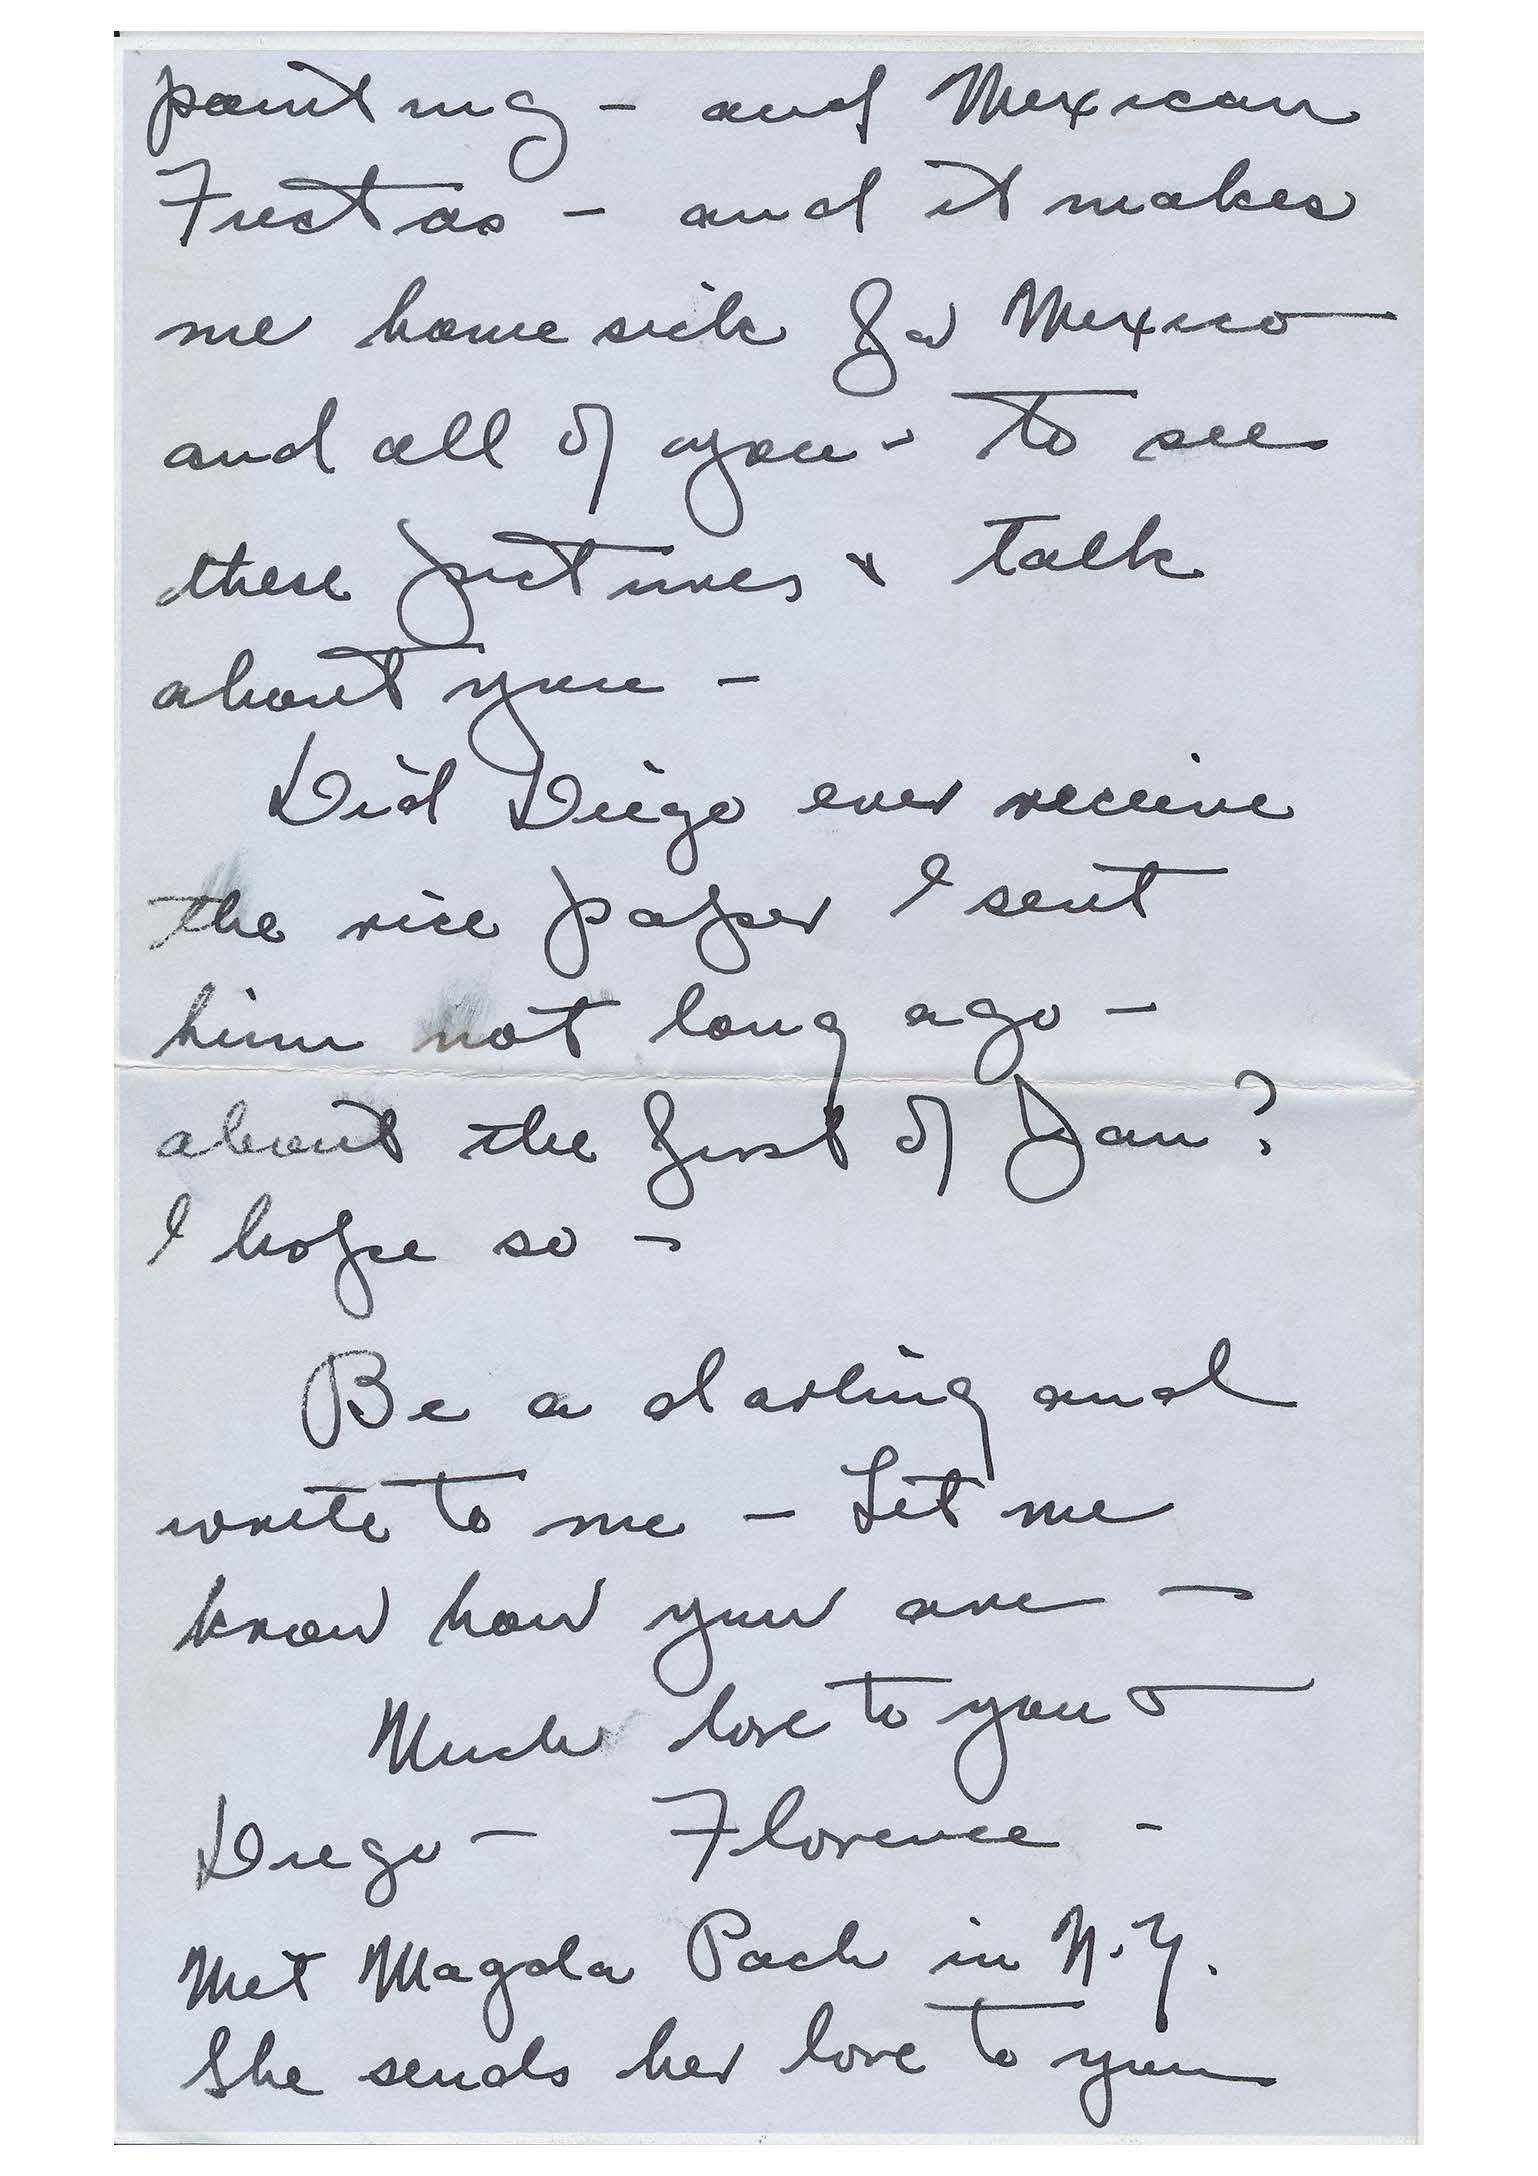 painting - and Mexican
Fiestas - and it makes
me homesick for Mexico
and all of you - to see
these pictures & talk
about you -
Did Diego ever receive
the rice paper I sent
him not long ago -
about the first of Jan?
I hope so -
Be a darling and
write to me - Let me
know how you are -
Much love to you &
Diego - Florence -
Met Magda Pach in N.Y.
She sends her love to you